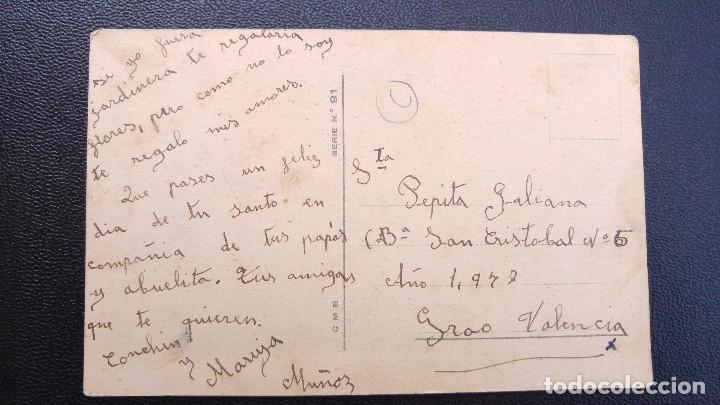 si yo fuera
jardinera te regalaria
flores, pero como no lo soy
te regalo mis amores.
Que pases un feliz
dia de tu santo en
compañia de tus papás
y abuelita. Tus amigas
que te quieren.
Conchin
y
Maruja
Muñoz
C M B
SERIE N.º 91
Sta
Pepita Galiana
(Bª San Cristobal Nº 5
Año 1,927
Grao Valencia
todocoleccion
todocoleccion.net